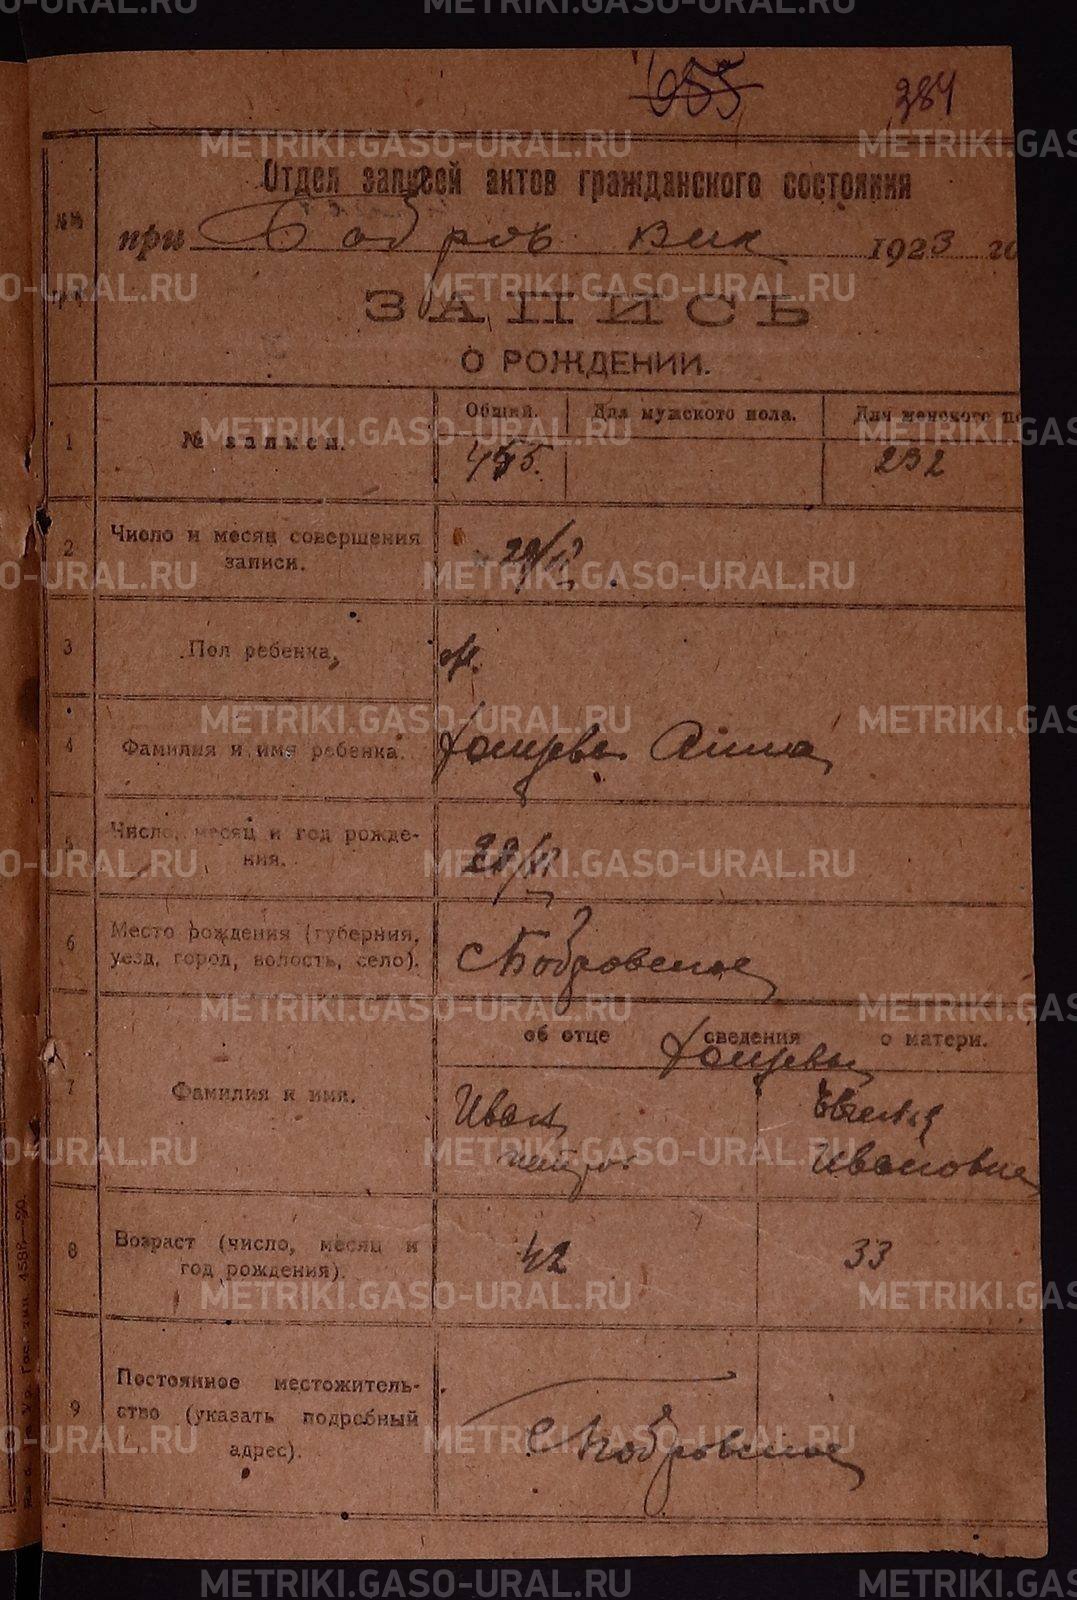 655
384
Отдел записей актов гражданского состояния
№№
при Бобров вик 1923 го
ЗАПИСЬ
О РОЖДЕНИИ.
Общий. Для мужского пола. Для женского по
1 № записи. 455. 232
2 Число и месяц совершения
записи.
3 Пол ребенка,
4 Фамилия и имя ребенка. Анна
5 Число, месяц и год рожде-
ния.
6 Место рождения (губерния,
уезд, город, волость, село). с Бобровское
об отце сведения о матери.
7 Фамилия и имя.
Иван
Ивановна
8 Возраст (число, месяц и
год рождения). 42 33
9 Постоянное местожитель-
ство (указать подробный
адрес). с Бобровское
METRIKI.GASO-URAL.RU